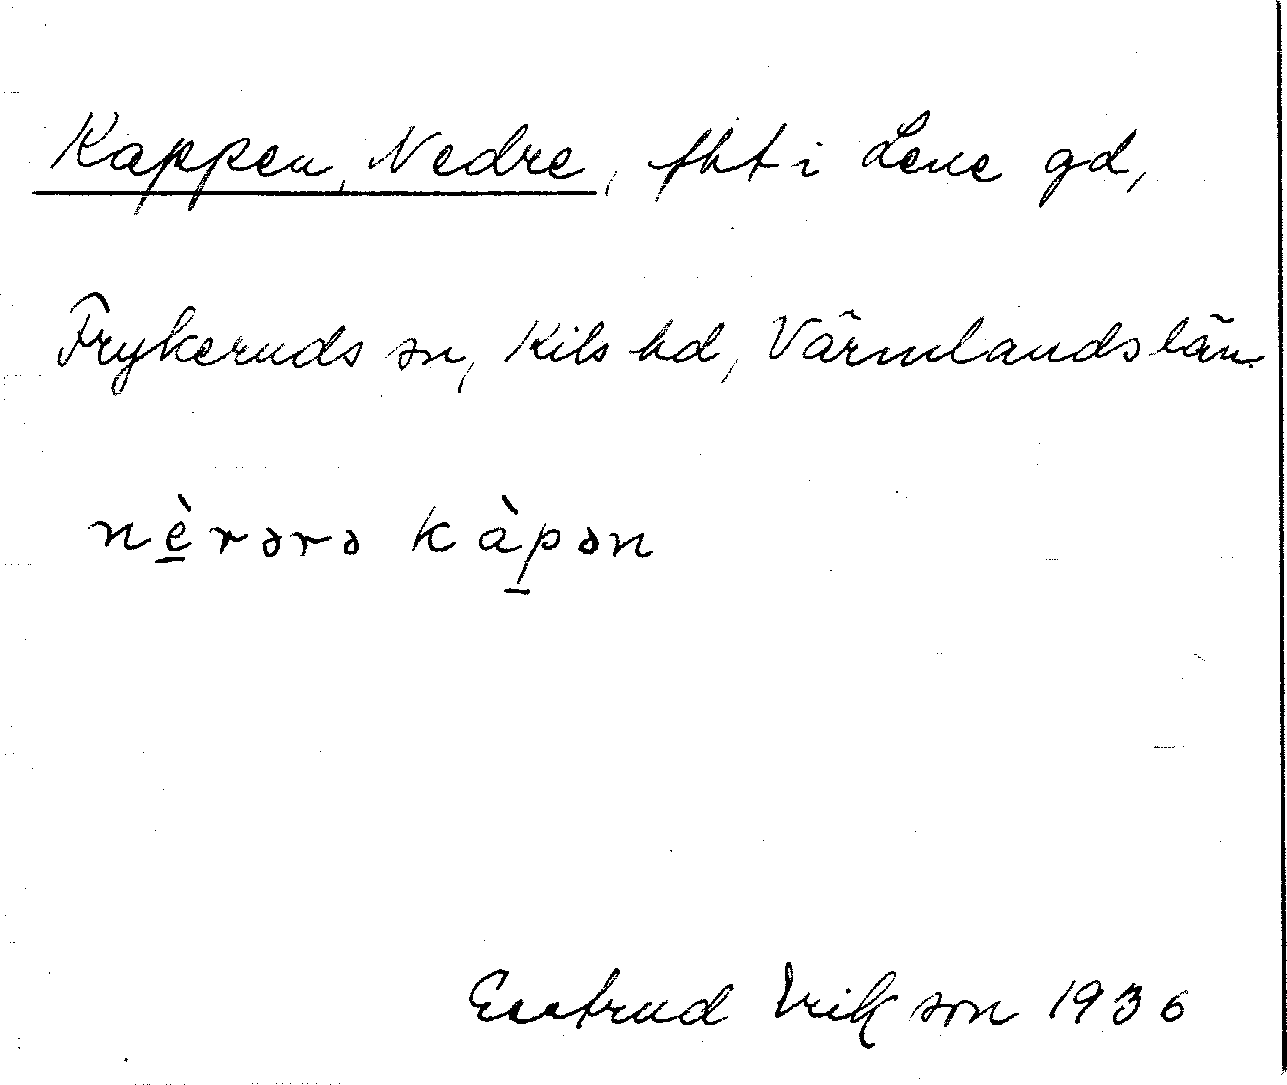 Kappen, Nedre, fht i Lene gd,
Frykeruds sn, Kils hd, Värmlands län.
nè̱rərə kàp̱ən
Eastrud Erikson 1936